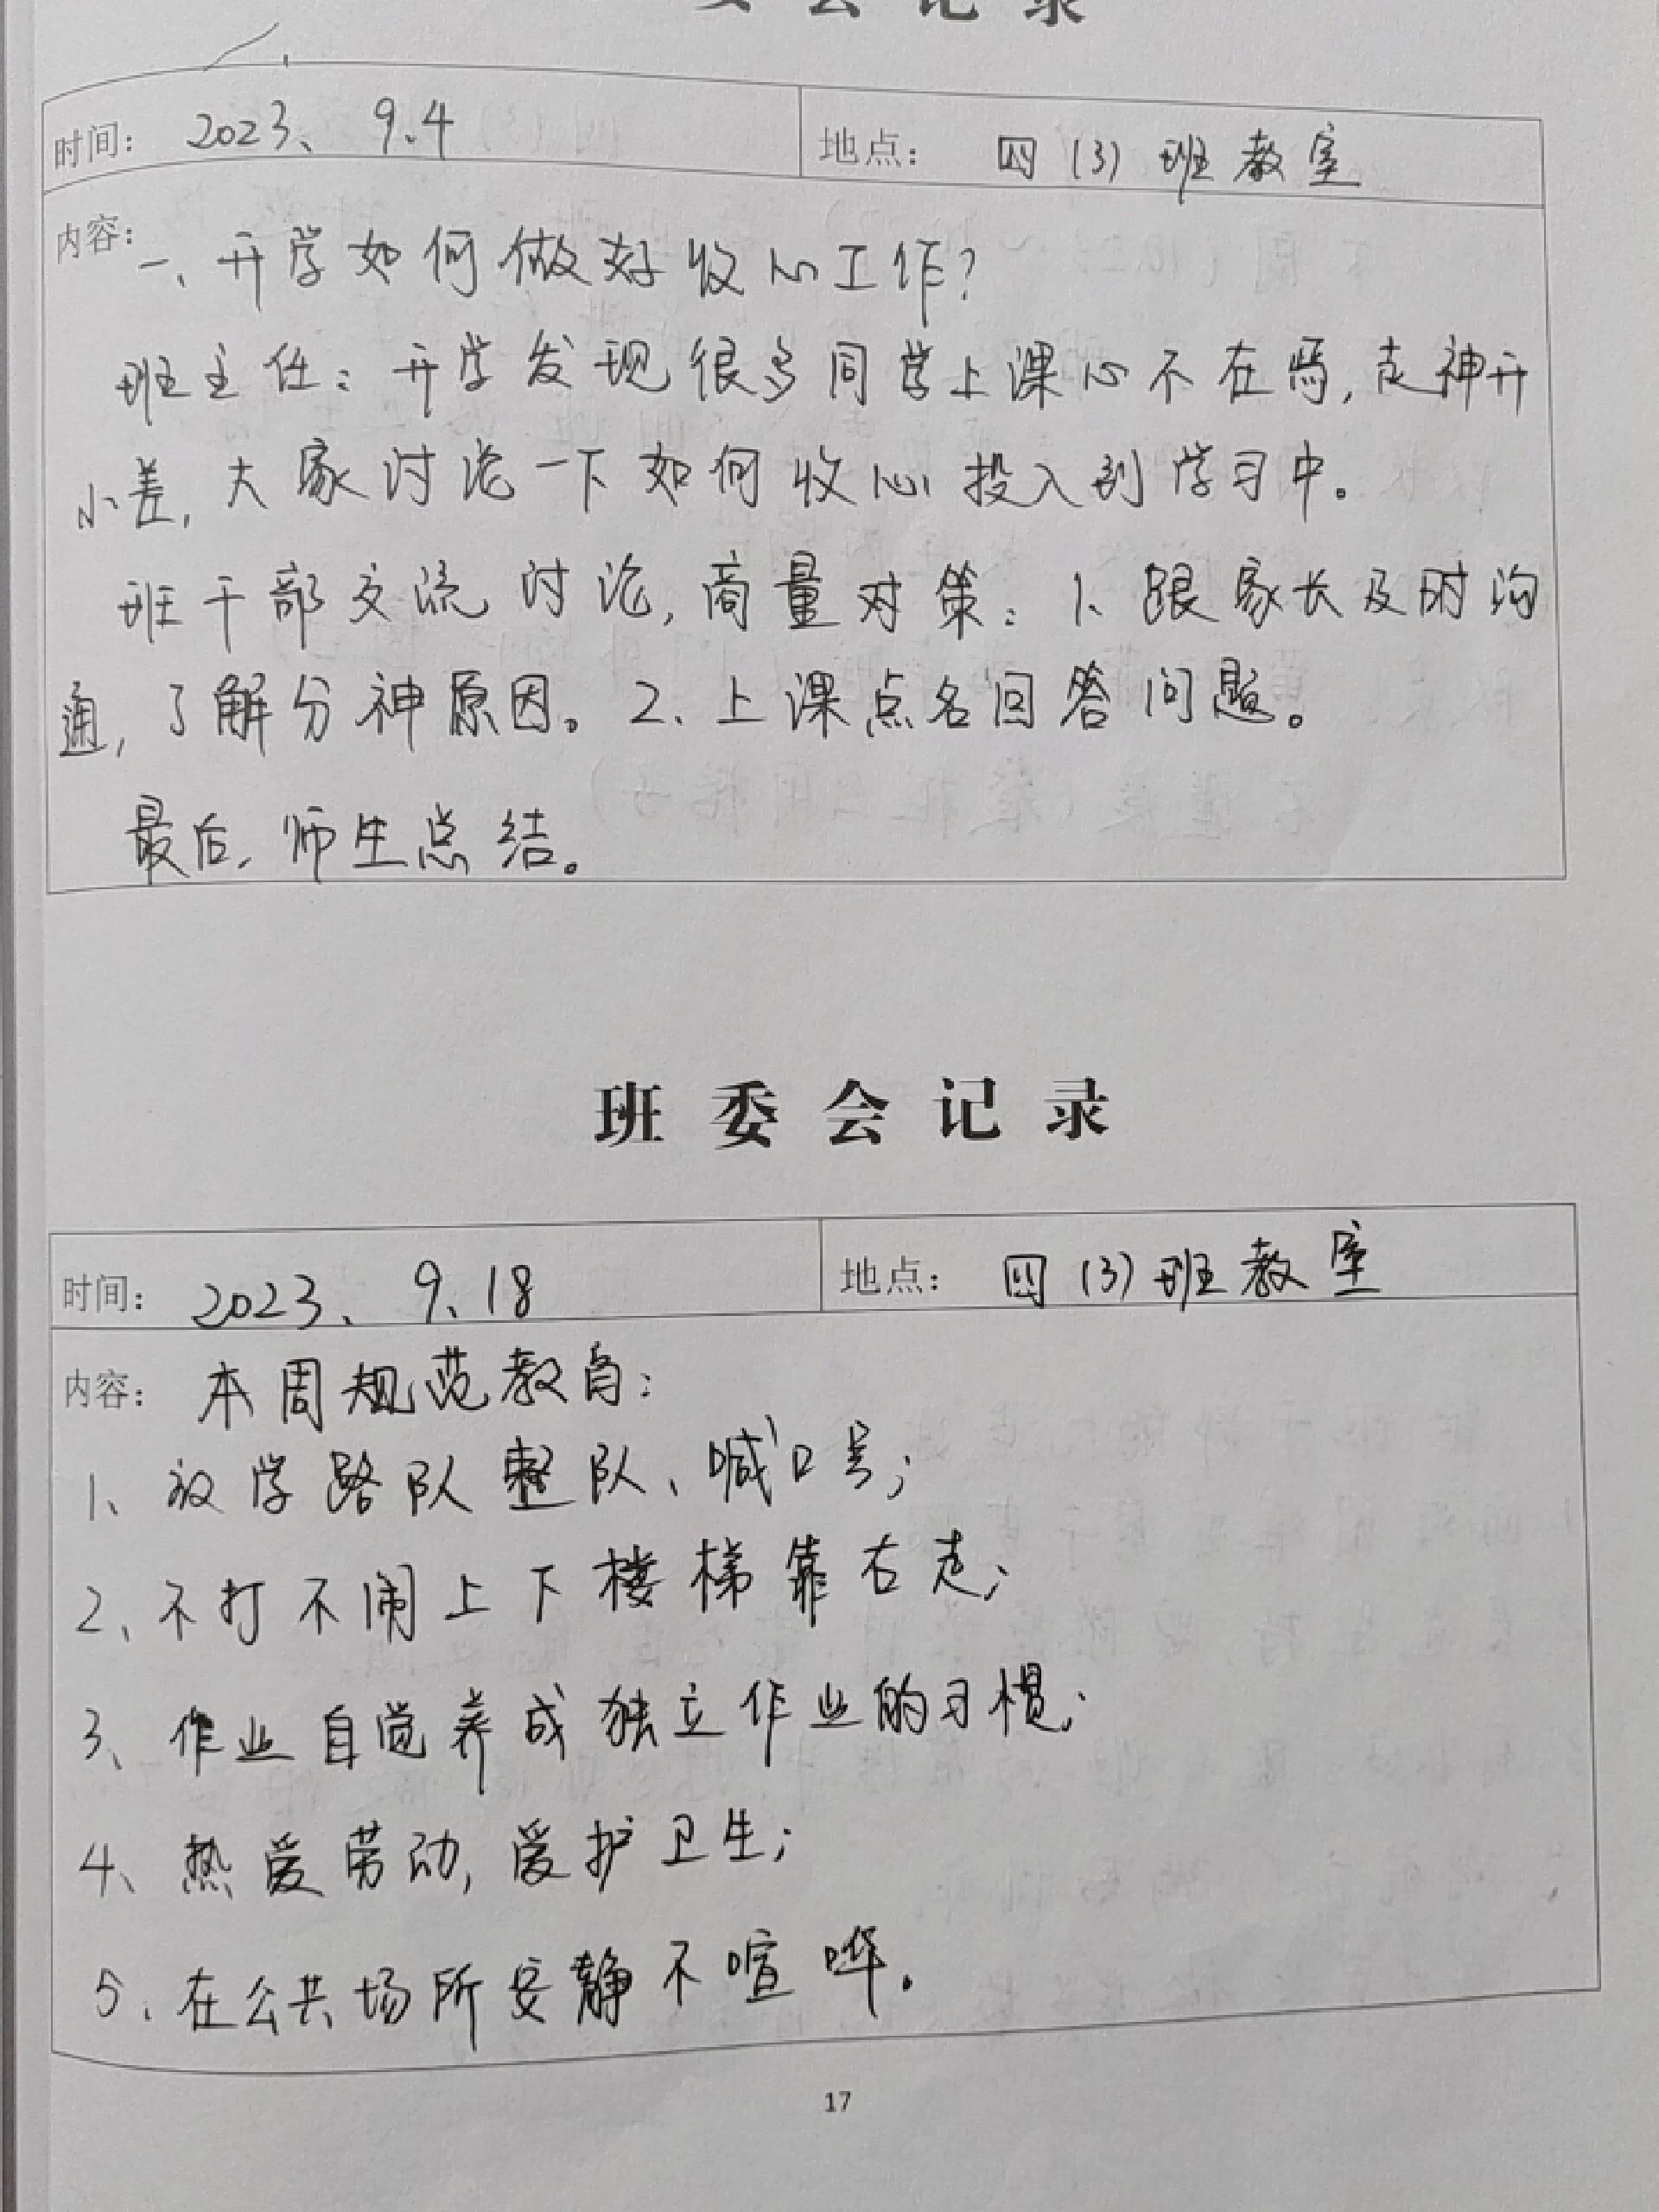 委会记录
时间： 2023、9.4 地点： 四（3）班教室
内容： 一、开学如何做好收心工作？
班主任：开学发现很多同学上课心不在焉，走神开
小差，大家讨论一下如何收心投入到学习中。
班干部交流讨论，商量对策：1、跟家长及时沟
通，了解分神原因。2、上课点名回答问题。
最后，师生总结。
班委会记录
时间： 2023、9、18 地点： 四（3）班教室
内容： 本周规范教育：
1、放学路队整队、喊口号；
2、不打不闹上下楼梯靠右走；
3、作业自觉养成独立作业的习惯；
4、热爱劳动，爱护卫生；
5、在公共场所安静不喧哗。
17